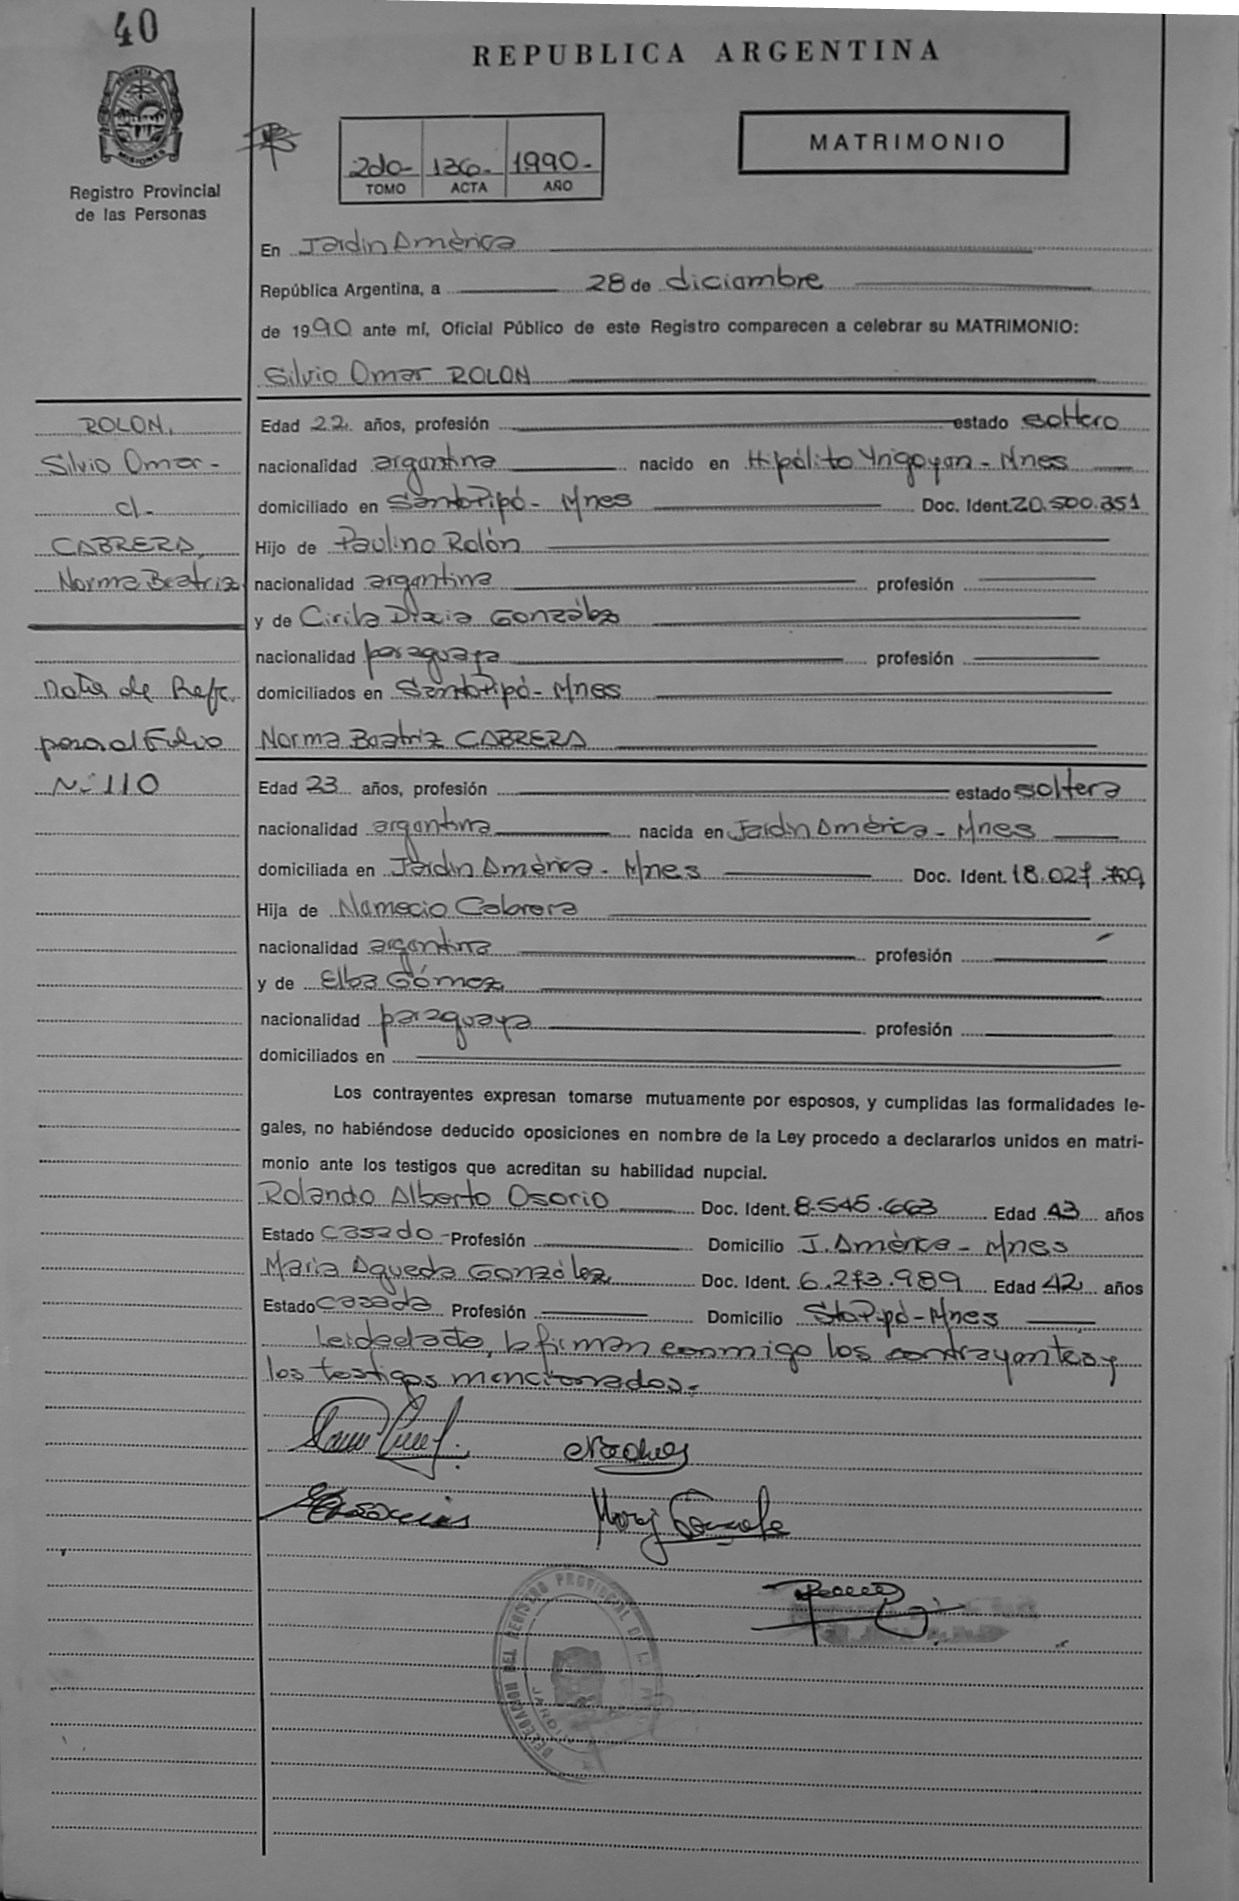 40
REPUBLICA ARGENTINA
PROVINCIA
MISIONES
Registro Provincial
de las Personas
2do- 136- 1990-
TOMO ACTA AÑO
MATRIMONIO
En Jardín América
República Argentina, a 28 de diciembre
de 1990 ante mí, Oficial Público de este Registro comparecen a celebrar su MATRIMONIO:
Silvio Omar ROLON
ROLON,
Silvio Omar-
c/-
CABRERA,
Norma Beatriz
Nota de Refc.
pasa al Folio
Nº 110
Edad 22 años, profesión estado soltero
nacionalidad argentina nacido en Hipólito Yrigoyen - Mnes
domiciliado en Santo Pipó - Mnes Doc. Ident. 20.500.351
Hijo de Paulino Rolón
nacionalidad argentina profesión
y de Cirila González
nacionalidad paraguaya profesión
domiciliados en Santo Pipó - Mnes
Norma Beatriz CABRERA
Edad 23 años, profesión estado soltera
nacionalidad argentina nacida en Jardín América - Mnes
domiciliada en Jardín América - Mnes Doc. Ident. 18.027.709
Hija de Namecio Cabrera
nacionalidad argentina profesión
y de Elba Gómez
nacionalidad paraguaya profesión
domiciliados en
Los contrayentes expresan tomarse mutuamente por esposos, y cumplidas las formalidades le-
gales, no habiéndose deducido oposiciones en nombre de la Ley procedo a declararlos unidos en matri-
monio ante los testigos que acreditan su habilidad nupcial.
Rolando Alberto Osorio Doc. Ident. 8.545.663 Edad 43 años
Estado casado - Profesión Domicilio J. América - Mnes
Maria Agueda González Doc. Ident. 6.273.989 Edad 42 años
Estado casada Profesión Domicilio Sto Pipó - Mnes
Leida el acta, la firman conmigo los contrayentes y
los testigos mencionados.-
DELEGACION DEL REGISTRO PROVINCIAL DE L